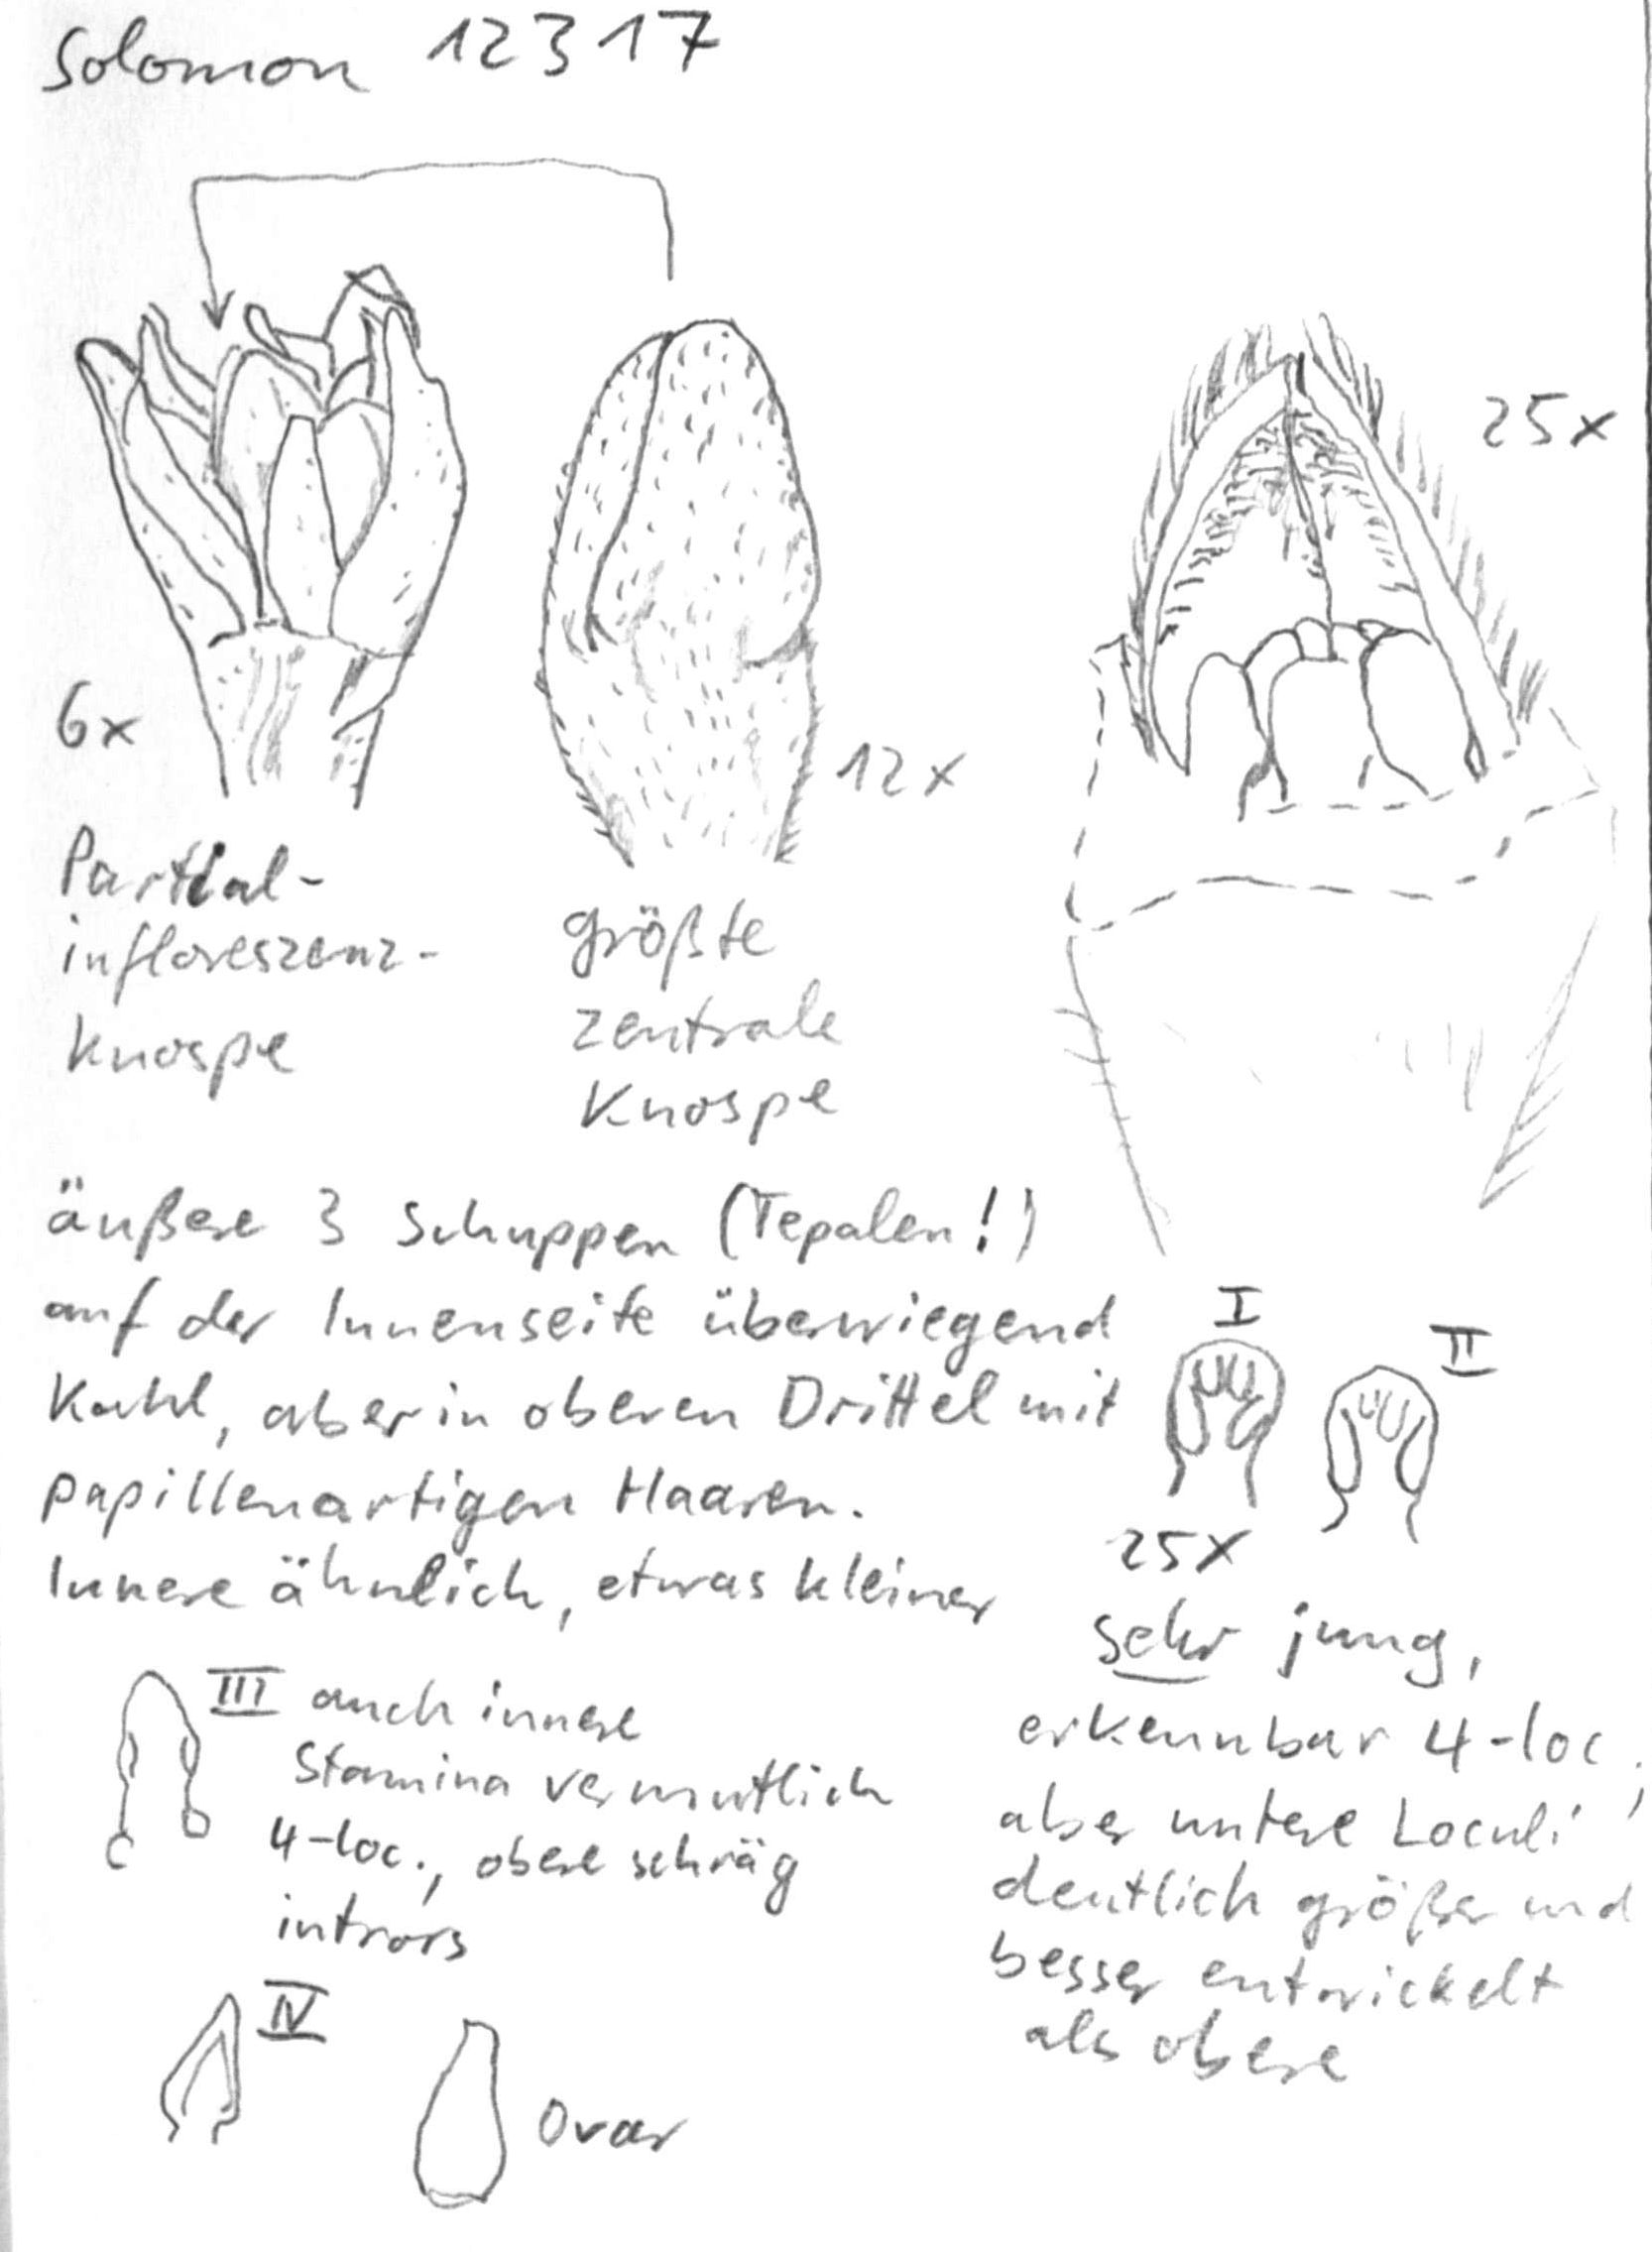 Solomon 12317
25x
6x
12x
Partial-
infloreszenz-
knospe
größte
zentrale
Knospe
äußere 3 Schuppen (Tepalen!)
auf der Innenseite überwiegend
kahl, aber in oberen Drittel mit
papillenartigen Haaren.
Innere ähnlich, etwas kleiner
I
II
25x
sehr jung,
erkennbar 4-loc.,
aber untere Loculi
deutlich größer und
besser entwickelt
als obere
III auch innere
Stamina vermutlich
4-loc., obere schräg
intrors
IV
Ovar